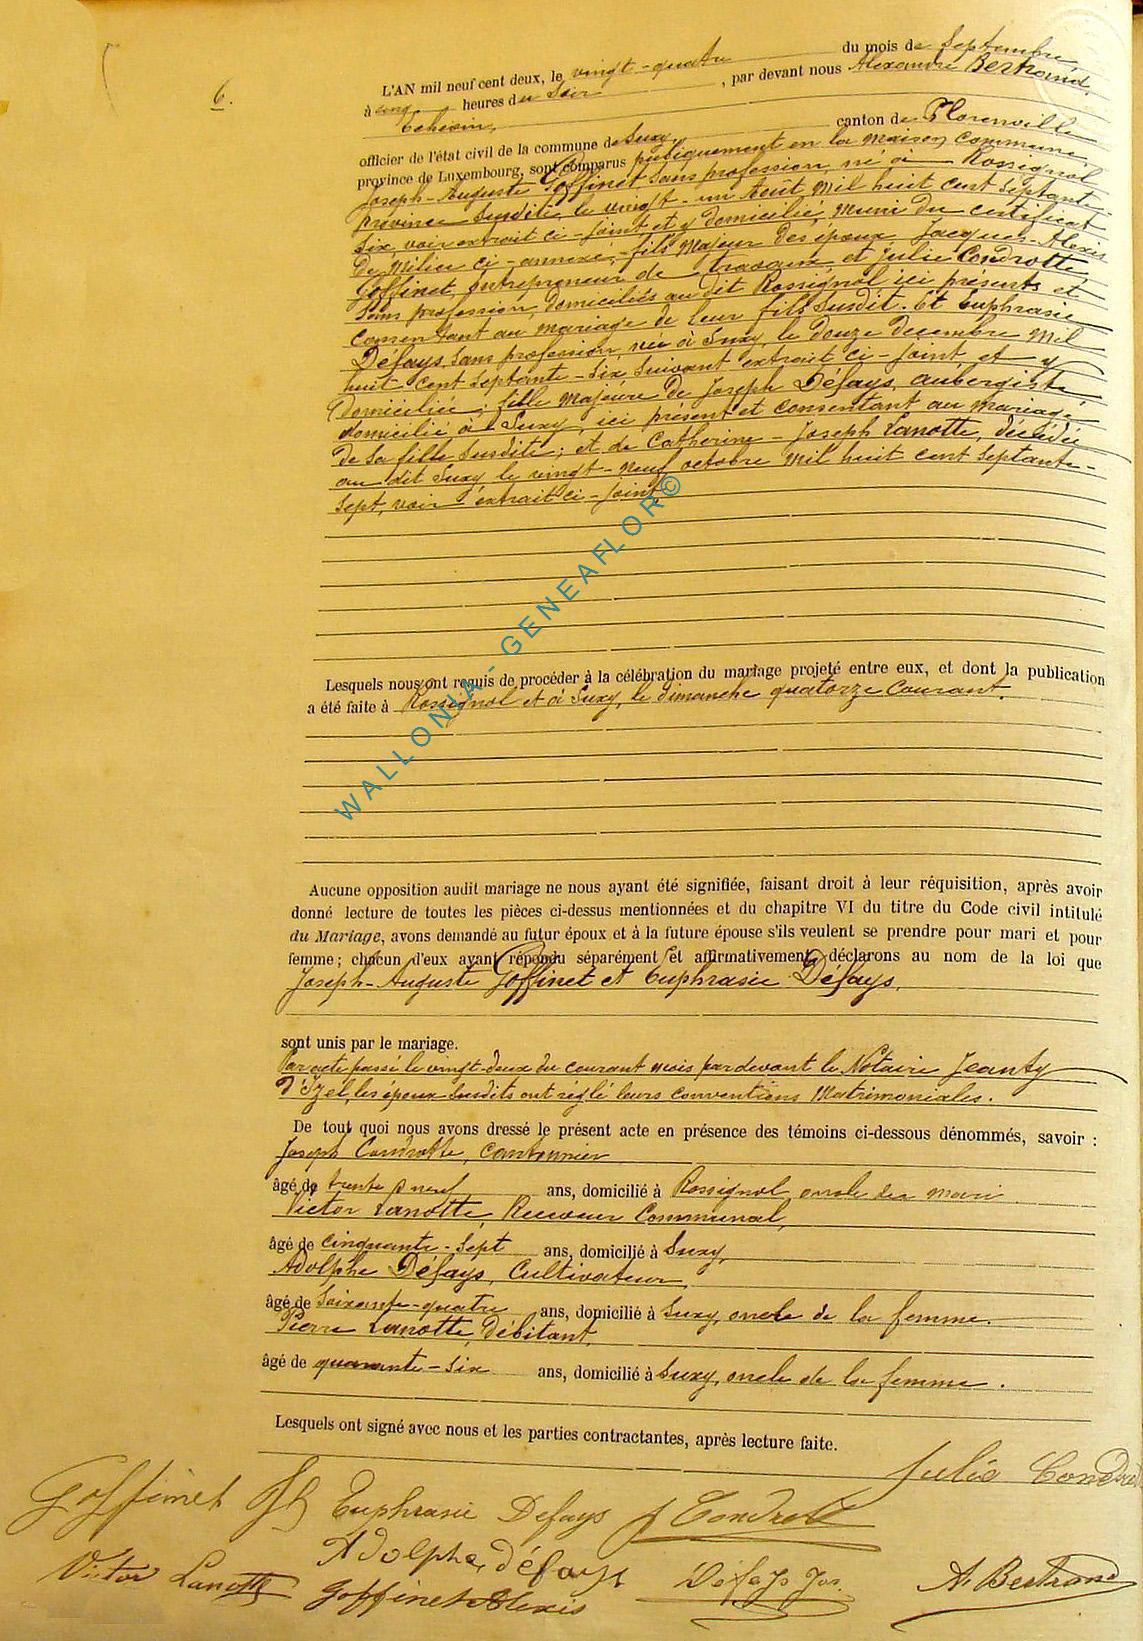 6.
L'AN mil neuf cent deux, le vingt-quatre du mois de Septembre,
à cinq heures du Soir, par devant nous Alexandre Bertrand,
Echevin,
officier de l'état civil de la commune de Suxy canton de Florenville
province de Luxembourg, sont comparus publiquement en la maison commune,
Joseph-Auguste Goffinet sans profession, né à Rossignol
province susdite, le vingt-un Août mil huit cent septante-
six, voir extrait ci-joint et y domicilié, muni du certificat
de Milice ci-annexé, fils majeur des époux Jacques-Alexis
Goffinet, Entrepreneur de travaux et Julie Condrotte,
sans profession, domiciliés au dit Rossignol ici présents et
consentant au mariage de leur fils susdit. Et Euphrasie
Défays, sans profession, née à Suxy, le douze décembre mil
huit cent septante-six suivant extrait ci-joint, et y
domiciliée; fille majeure de Joseph Défays, aubergiste,
domicilié à Suxy, ici présent et consentant au mariage
de sa fille susdite; et de Catherine-Joseph Lanotte, décédée
au dit Suxy le vingt-neuf octobre mil huit cent septante-
sept, voir extrait ci-joint
Lesquels nous ont requis de procéder à la célébration du mariage projeté entre eux, et dont la publication
a été faite à Rossignol et à Suxy, le dimanche quatorze Courant.
WALLONIA-GENEAFLOR©
Aucune opposition audit mariage ne nous ayant été signifiée, faisant droit à leur réquisition, après avoir
donné lecture de toutes les pièces ci-dessus mentionnées et du chapitre VI du titre du Code civil intitulé
du Mariage, avons demandé au futur époux et à la future épouse s'ils veulent se prendre pour mari et pour
femme; chacun d'eux ayant répondu séparément et affirmativement, déclarons au nom de la loi que
Joseph-Auguste Goffinet et Euphrasie Défays,
sont unis par le mariage.
Par acte passé le vingt-deux du courant mois par devant le Notaire Jeanty
d'Izel, les époux susdits ont réglé leurs conventions Matrimoniales.
De tout quoi nous avons dressé le présent acte en présence des témoins ci-dessous dénommés, savoir :
Joseph Condrotte, Cantonnier
âgé de trente neuf ans, domicilié à Rossignol oncle du mari
Victor Lanotte, Receveur Communal,
âgé de Cinquante-sept ans, domicilié à Suxy,
Adolphe Défays, Cultivateur,
âgé de Soixante-quatre ans, domicilié à Suxy, oncle de la femme.
Pierre Lanotte, Débitant,
âgé de quarante-six ans, domicilié à Suxy, oncle de la femme.
Lesquels ont signé avec nous et les parties contractantes, après lecture faite.
Julie Condrotte
Goffinet Euphrasie Defays J Condrotte
Victor Lanotte Adolphe, défays Défays Jos. A. Bertrand
Goffinet Alexis